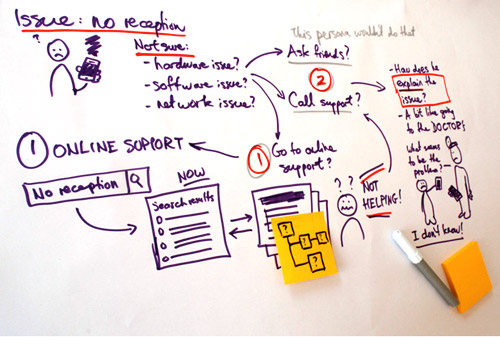 Issue: no reception
?
Not sure:
- hardware issue?
- software issue?
- network issue?
This persona wouldn't do that
Ask friends?
2
Call support?
1
Go to online
support?
- How does he
explain the
issue?
- A bit like going
to the DOCTOR'S
What seems
to be the
problem?
I don't know!
1 ONLINE SUPPORT
No reception
NOW
Search results
? ?
NOT
HELPING!
?
?
?
?
?